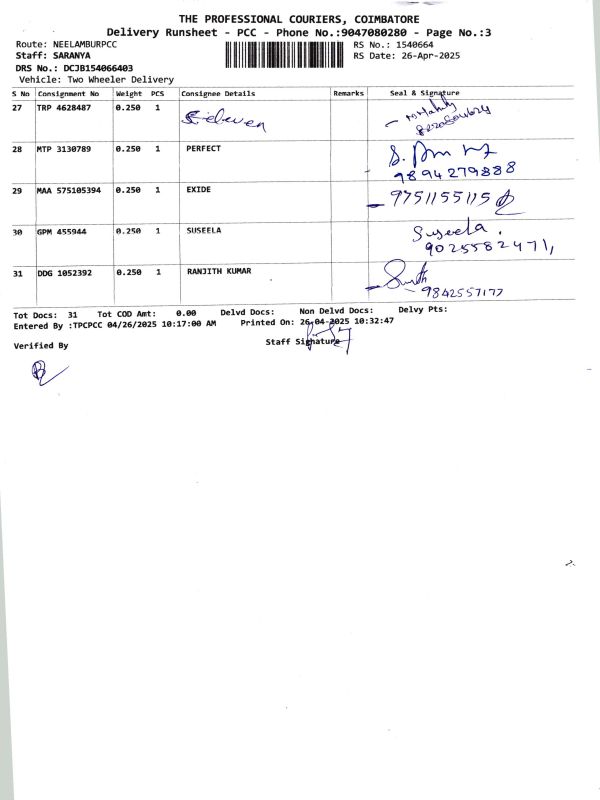 THE PROFESSIONAL COURIERS, COIMBATORE
Delivery Runsheet - PCC - Phone No.:9047080280 - Page No.:3
Route: NEELAMBURPCC RS No.: 1540664
Staff: SARANYA RS Date: 26-Apr-2025
DRS No.: DCJB154066403
Vehicle: Two Wheeler Delivery
S No Consignment No Weight PCS Consignee Details Remarks Seal & Signature
27 TRP 4628487 0.250 1
28 MTP 3130789 0.250 1 PERFECT
9894279888
29 MAA 575105394 0.250 1 EXIDE 9751155115
30 GPM 455944 0.250 1 SUSEELA Suseela.
9025582471,
31 DDG 1052392 0.250 1 RANJITH KUMAR
9842557177
Tot Docs: 31 Tot COD Amt: 0.00 Delvd Docs: Non Delvd Docs: Delvy Pts:
Entered By :TPCPCC 04/26/2025 10:17:00 AM Printed On: 26-04-2025 10:32:47
Verified By Staff Signature